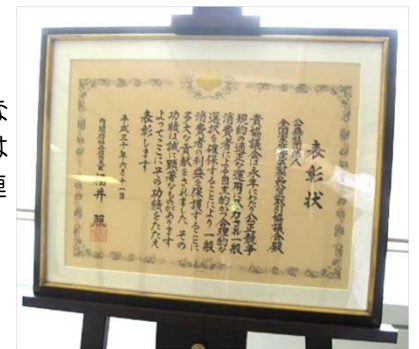 な
は
表彰状
公益社団法人
全国家庭電気製品公正取引協議会殿
貴協議会は永年にわたり公正競争
規約の適正な運用に尽力され一般
消費者による自主的かつ合理的な
選択を確保することにより一般
消費者の利益を保護することに
多大な貢献をされました その
功績は誠に顕著なものがあります
よってここにその功績をたたえ
表彰します
平成三十年六月十一日
内閣府特命担当大臣 福井 照